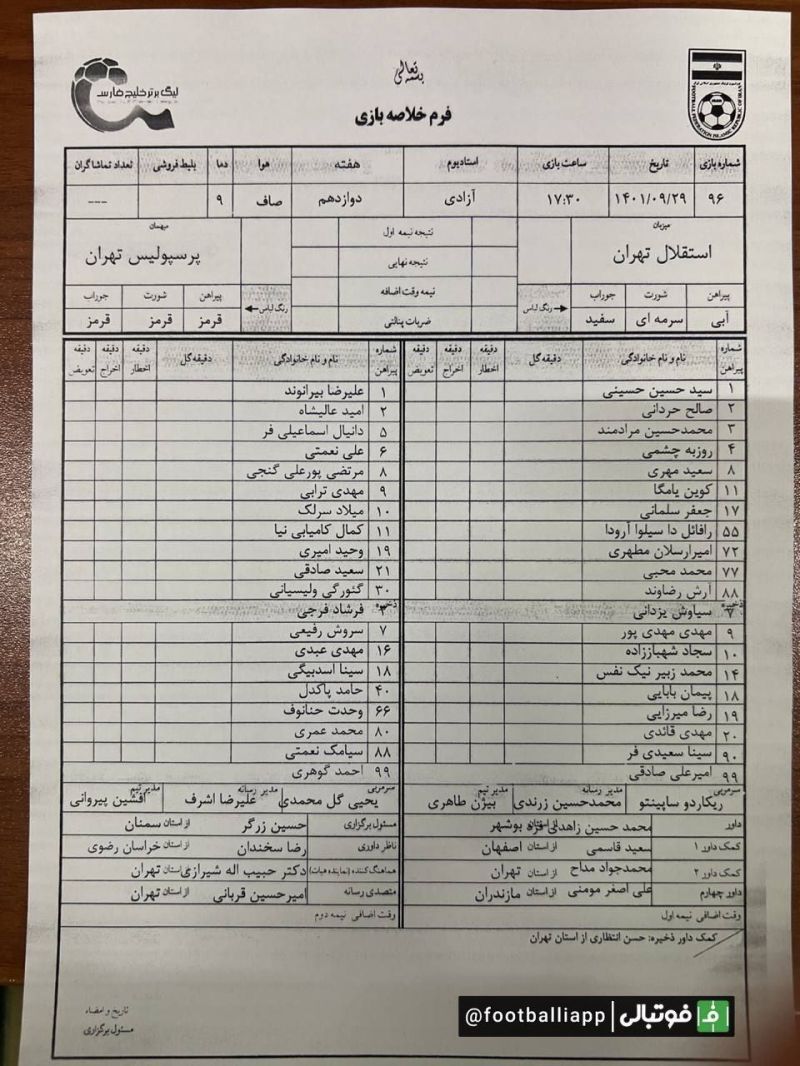 بسمه تعالی
لیگ برتر خلیج فارس
فرم خلاصه بازی
FOOTBALL FEDERATION ISLAMIC REPUBLIC OF IRAN
شماره بازی تاریخ ساعت بازی استادیوم هفته هوا دما بلیط فروشی تعداد تماشاگران
۹۶ ۱۴۰۱/۰۹/۲۹ ۱۷:۳۰ آزادی دوازدهم صاف ۹ ---
میزبان نتیجه نیمه اول میهمان
استقلال تهران نتیجه نهایی پرسپولیس تهران
پیراهن شورت جوراب رنگ لباس نیمه وقت اضافه رنگ لباس پیراهن شورت جوراب
آبی سرمه ای سفید ضربات پنالتی قرمز قرمز قرمز
شماره پیراهن نام و نام خانوادگی دقیقه گل دقیقه اخطار دقیقه اخراج دقیقه تعویض شماره پیراهن نام و نام خانوادگی دقیقه گل دقیقه اخطار دقیقه اخراج دقیقه تعویض
۱ سید حسین حسینی ۱ علیرضا بیرانوند
۲ صالح حردانی ۲ امید عالیشاه
۳ محمدحسین مرادمند ۵ دانیال اسماعیلی فر
۴ روزبه چشمی ۶ علی نعمتی
۸ سعید مهری ۸ مرتضی پورعلی گنجی
۱۱ کوین یامگا ۹ مهدی ترابی
۱۷ جعفر سلمانی ۱۰ میلاد سرلک
۵۵ رافائل دا سیلوا آرودا ۱۱ کمال کامیابی نیا
۷۲ امیرارسلان مطهری ۱۹ وحید امیری
۷۷ محمد محبی ۲۱ سعید صادقی
۸۸ آرش رضاوند ۳۰ گئورگی ولیسیانی
ذخیره سیاوش یزدانی ذخیره فرشاد فرجی
۹ مهدی مهدی پور ۷ سروش رفیعی
۱۰ سجاد شهباززاده ۱۶ مهدی عبدی
۱۴ محمد زبیر نیک نفس ۱۸ سینا اسدبیگی
۱۸ پیمان بابایی ۴۰ حامد پاکدل
۱۹ رضا میرزایی ۶۶ وحدت حنانوف
۲۰ مهدی قائدی ۸۰ محمد عمری
۹۰ سینا سعیدی فر ۸۸ سیامک نعمتی
۹۹ امیرعلی صادقی ۹۹ احمد گوهری
سرمربی ریکاردو ساپینتو مدیر رسانه محمدحسین زرندی مدیر تیم بیژن طاهری سرمربی یحیی گل محمدی مدیر رسانه علیرضا اشرف مدیر تیم افشین پیروانی
داور محمد حسین زاهدی فر از استان بوشهر مسئول برگزاری حسین زرگر از استان سمنان
کمک داور ۱ سعید قاسمی از استان اصفهان ناظر داوری رضا سخندان از استان خراسان رضوی
کمک داور ۲ محمدجواد مداح از استان تهران هماهنگ کننده (نماینده هیات) دکتر حبیب اله شیرازی از استان تهران
داور چهارم علی اصغر مومنی از استان مازندران متصدی رسانه امیرحسین قربانی از استان تهران
وقت اضافی نیمه اول وقت اضافی نیمه دوم
کمک داور ذخیره: حسن انتظاری از استان تهران
تاریخ و امضاء
مسئول برگزاری
@footballiapp | فوتبالی